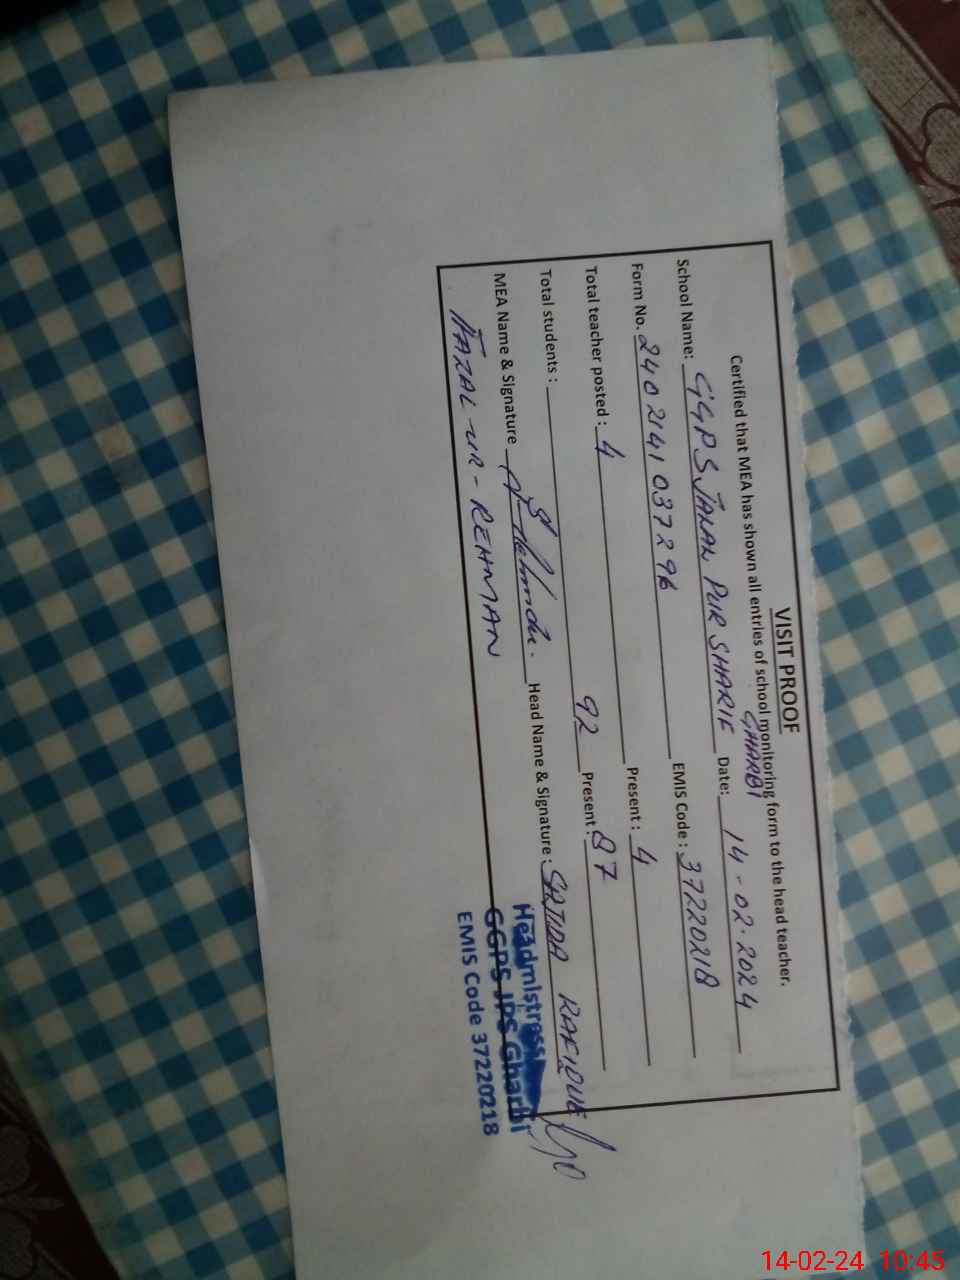 VISIT PROOF
Certified that MEA has shown all entries of school monitoring form to the head teacher.
School Name: GGPS JANAN PUR SHARIF GHARBI Date: 14-02-2024
Form No. 2402141037296 EMIS Code: 37220218
Total teacher posted: 4 Present: 4
Total students: 92 Present: 87
MEA Name & Signature Head Name & Signature: SAJIDA RAFIQUE
FAZAL-UR-REHMAN
Headmistress
GGPS JPS Gharbi
EMIS Code 37220218
14-02-24 10:45